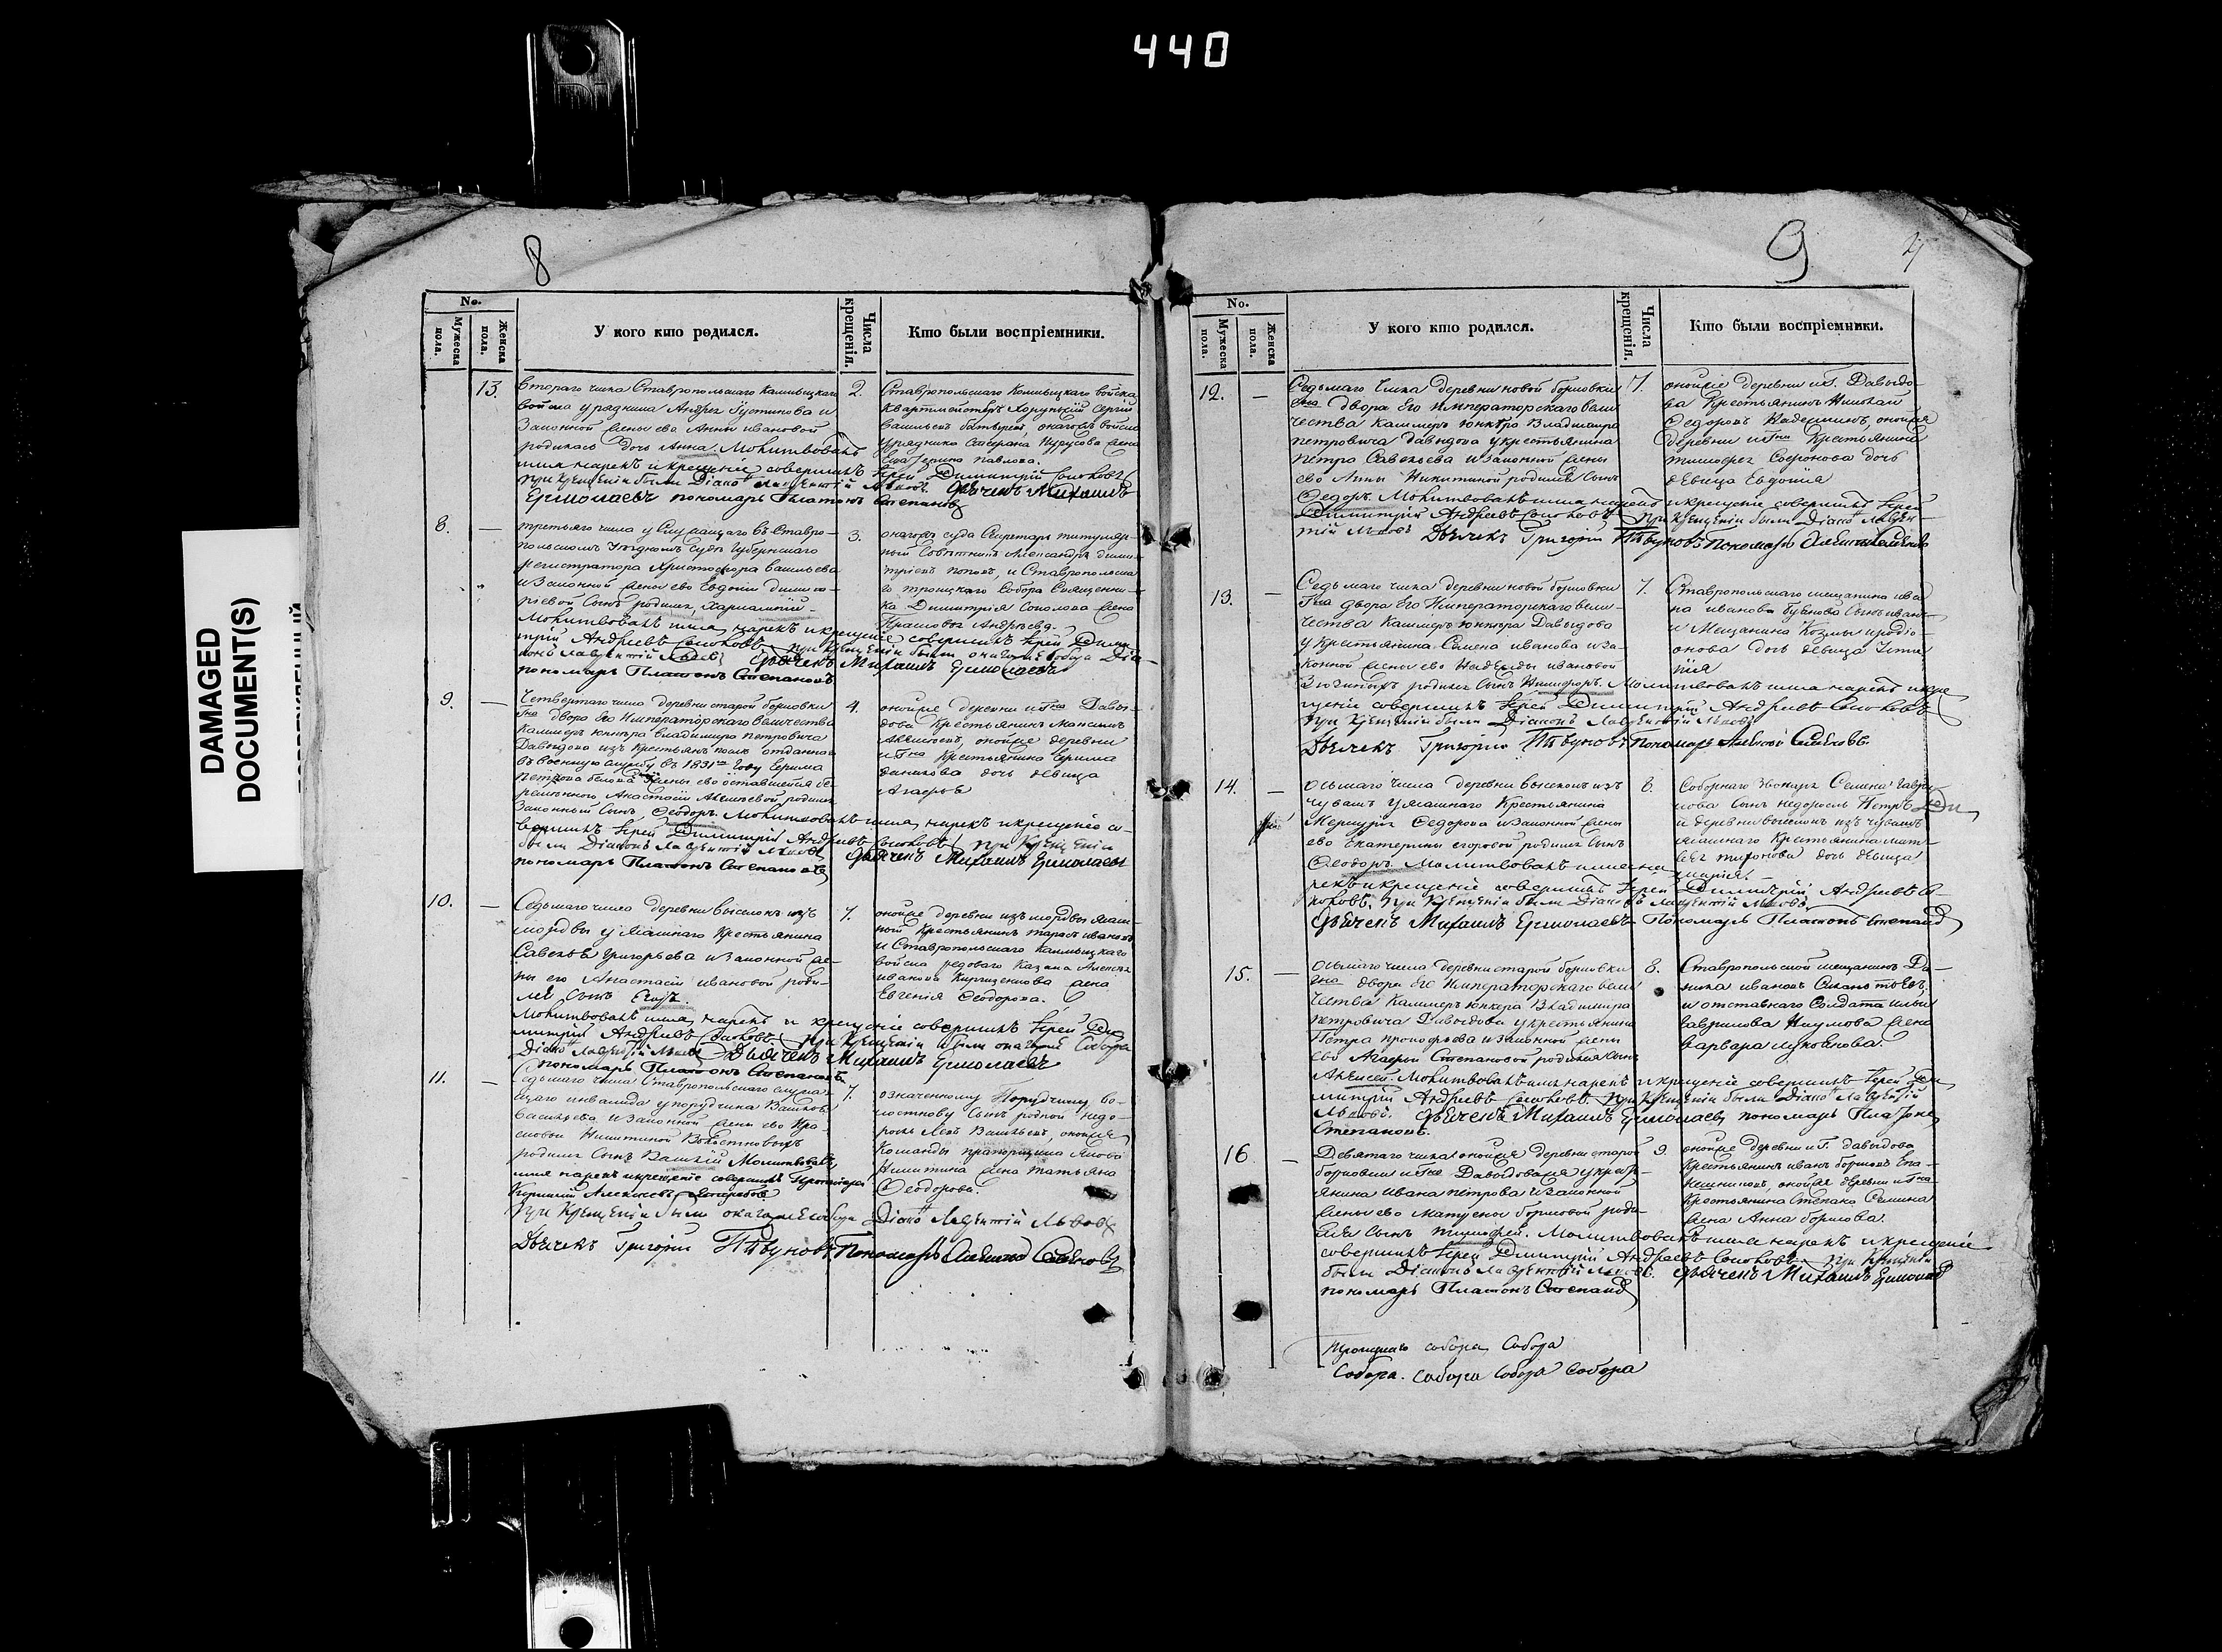 440
DAMAGED
DOCUMENT(S)
8
No.
Мужеска пола.
Женска пола.
У кого кто родился.
Числа крещенія.
Кто были воспріемники.
13.
Втораго числа Ставропольскаго Калмыцкаго
войска урядника Андрея
законной жены ево Анны ивановой
родилась дочь Анна. Молитвовалъ
имя нарекъ и крещеніе совершилъ Іерей Димитрій Соколовъ
при крещеніи были Діаконъ Лаврентій Львовъ. Дьячекъ Михаилъ
Ермолаевъ пономарь Платонъ Степановъ
2.
Ставропольскаго Калмыцкаго войска
квартмейстеръ Хорунжій Сергій
Васильевъ онагожъ войска
урядника жена
Павлова.
8.
третьяго числа у Служащаго въ Ставро-
польскомъ Уездномъ Суде Губернскаго
регистратора Христофора Васильева
и законной жены ево Евдокіи Димит-
ріевой Сынъ родился Харлампій
Молитвовалъ имя нарекъ и крещеніе совершилъ Іерей Дими-
трій Андреевъ Соколовъ при крещеніи были онагоже Собора Діа-
конъ Лаврентій Львовъ Дьячекъ Михаилъ Ермолаевъ
пономарь Платонъ Степановъ
3.
онагожъ суда Секретарь титуляр-
ный Советникъ Александръ Дими-
тріевъ Поповъ, и Ставропольска-
го троицкаго Собора Священни-
ка Димитрія Соколова жена
Андреева.
9.
Четвертаго числа деревни старой бормовки
Гна двора Его Императорскаго величества
Каммеръ юнкера Владимира Петровича
Давыдова изъ крестьянъ отданнаго
въ военную службу въ 1831мъ году Ефима
Петрова жены ево оставшейся бе-
ременною Анастасіи Алексеевой родился
законный Сынъ Феодоръ. Молитвовалъ имя нарекъ и крещеніе со-
вершилъ Іерей Димитрій Андреевъ Соколовъ при Крещеніи
были Діаконъ Лаврентій Львовъ Дьячекъ Михаилъ Ермолаевъ
пономарь Платонъ Степановъ
4.
онойже деревни и Гна Давы-
дова Крестьянинъ Максимъ
Алексеевъ, онойже деревни
и Гна Крестьянина Ефима
данилова дочь девица
Агафья
10.
Седьмаго числа деревни выселокъ изъ
мордвы у ясашнаго Крестьянина
Савелья Григорьева и законной же-
ны его Анастасіи ивановой роди-
лся сынъ Егоръ.
Молитвовалъ имя нарекъ и крещеніе совершилъ Іерей Ди-
митрій Андреевъ Соколовъ при Крещеніи были онагоже Собора
Діаконъ Лаврентій Львовъ Дьячекъ Михаилъ Ермолаевъ
пономарь Платонъ Степановъ
7.
онойже деревни изъ мордвы ясаш-
ный Крестьянинъ тарасъ ивановъ
и Ставропольскаго Калмыцкаго
войска рядоваго Казака Алексея
иванова жена
Евгенія Феодорова.
11.
Седьмаго числа Ставропольскаго служа-
щаго инвалида у порутчика Василья
Васильева и законной жены ево Пра-
сковьи Никитиной
родился Сынъ Василій Молитвовалъ
имя нарекъ и крещеніе совершилъ Протоіерей
при Крещеніи были онагоже собора Діаконъ Лаврентій Львовъ
Дьячекъ Григорій Пономарь Алексей
7.
означенному Порутчику
Сынъ родной недо-
росль Левъ Васильевъ, онойже
команды прапорщика Якова
Никитина жена татьяна
Феодорова.
9
4
No.
Мужеска пола.
Женска пола.
У кого кто родился.
Числа крещенія.
Кто были воспріемники.
12.
Седьмаго Числа деревни новой бормовки
Гна двора Его Императорскаго вели-
чества Каммеръ юнкера Владимира
петровича Давыдова у крестьянина
Петра Савельева и законной жены
ево Анны Никитиной родился Сынъ
Федоръ. Молитвовалъ имя нарекъ и крещеніе совершилъ Іерей
Димитрій Андреевъ Соколовъ при крещеніи были Діаконъ Лаврен-
тій Львовъ Дьячекъ Григорій Пономарь
7.
онойже деревни и Г. Давыдо-
ва Крестьянинъ Николай
Федоровъ онойже
деревни и Гна Крестьянина
тимофея Софронова дочь
девица Евдокія
13.
Седьмаго числа деревни новой бормовки
Гна двора Его Императорскаго вели-
чества Каммеръ юнкера Давыдова
у крестьянина Семена иванова и за-
конной жены ево Надежды ивановой
родился Сынъ Никифоръ. Молитвовалъ имя нарекъ и кре-
щеніе совершилъ Іерей Димитрій Андреевъ Соколовъ
при Крещеніи были Діаконъ Лаврентій Львовъ
Дьячекъ Григорій Пономарь Алексей
7.
Ставропольскаго мещанина ива-
на иванова Сынъ иванъ
и Мещанина Козмы иродіо-
нова дочь девица
14.
Осьмаго числа деревни выселокъ изъ
чувашъ у ясашнаго Крестьянина
Меркурія Федорова и законной жены
ево Екатерины егоровой родился Сынъ
Феодоръ. Молитвовалъ имя на-
рекъ и крещеніе совершилъ Іерей Димитрій Андреевъ Со-
коловъ. При Крещеніи были Діаконъ Лаврентій Львовъ
Дьячекъ Михаилъ Ермолаевъ Пономарь Платонъ Степановъ
8.
Соборнаго Звонаря Семена Гаври-
лова Сынъ недоросль Петръ
и деревни выселокъ изъ чувашъ
ясашнаго Крестьянина мат-
вея дочь девица
марія.
15.
Осьмаго числа деревни старой бормовки
Гна двора Его Императорскаго вели-
чества Каммеръ юнкера Владимира
петровича Давыдова у крестьянина
Петра прокофьева и законной жены
ево Агафьи Степановой родился Сынъ
Алексей. Молитвовалъ имя нарекъ и крещеніе совершилъ Іерей Ди-
митрій Андреевъ Соколовъ. При Крещеніи были Діаконъ Лаврентій
Львовъ. Дьячекъ Михаилъ Ермолаевъ пономарь Платонъ
Степановъ.
8.
Ставропольской мещанинъ Да-
нила ивановъ
и отставнаго Солдата ильи
Гаврилова Наумова жена
варвара лукьянова.
16
Девятаго числа онойже деревни старой
бормовки и Гна Давыдова у крестья-
янина ивана петрова и законной
жены ево родил-
ся Сынъ тимофей. Молитвовалъ имя нарекъ и крещеніе
совершилъ Іерей Димитрій Андреевъ Соколовъ при Крещеніи
были Діаконъ Лаврентій Львовъ. Дьячекъ Михаилъ Ермолаевъ
пономарь Платонъ Степановъ
9.
онойже деревни и Г. Давыдова
Крестьянинъ иванъ
онойже деревни и Гна
Крестьянина Степана Семина
жена Анна борисова.
Троицкаго собора Собора
Собора. Собора Собора Собора